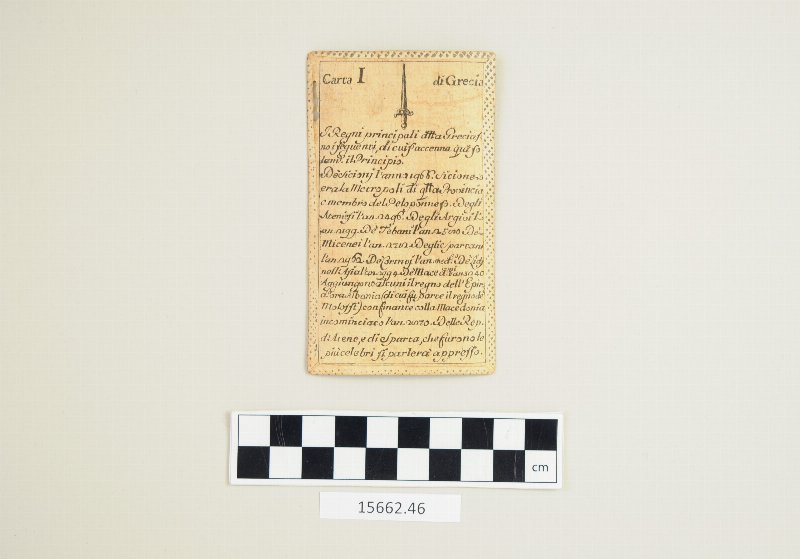 Carta I di Grecia
I Regni principali della Grecia s
no i seguenti, di cui s'accenna qui so
il Principio.
De Sicionj l'ann. 1966. Sicione
era la Metropoli di qlla Provincia
e membro del Peloponneso. Degli
Ateniesi l'an. 2496. Degli Argivi l'
an. 2199. De Tebani l'an. 2500 De
Micenei l'an. 2712. Deglie spartani
l'an. De l'an. De Lidj
nell'Asia l'an. De Maced.
Aggiungono alcuni il regno dell'Epir
ora Albania (di cui fu parte il regno de
Molossi) confinante colla Macedonia
incominciato l'an. 2820. Delle Rep.
di Atene, e di Sparta, che furono le
più celebri si parlerà appresso.
cm
15662.46